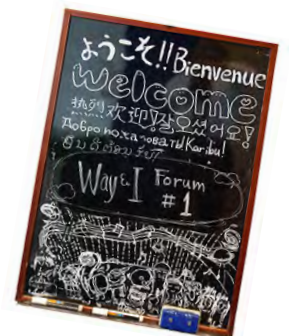 ようこそ!! Bienvenue
welcome
热烈欢迎! 잘 오셨어요!
Добро пожаловать! Karibu!
ยินดีต้อนรับ
Way & I Forum
#1